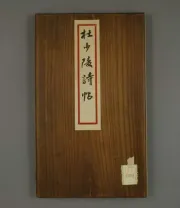 杜少陵詩帖